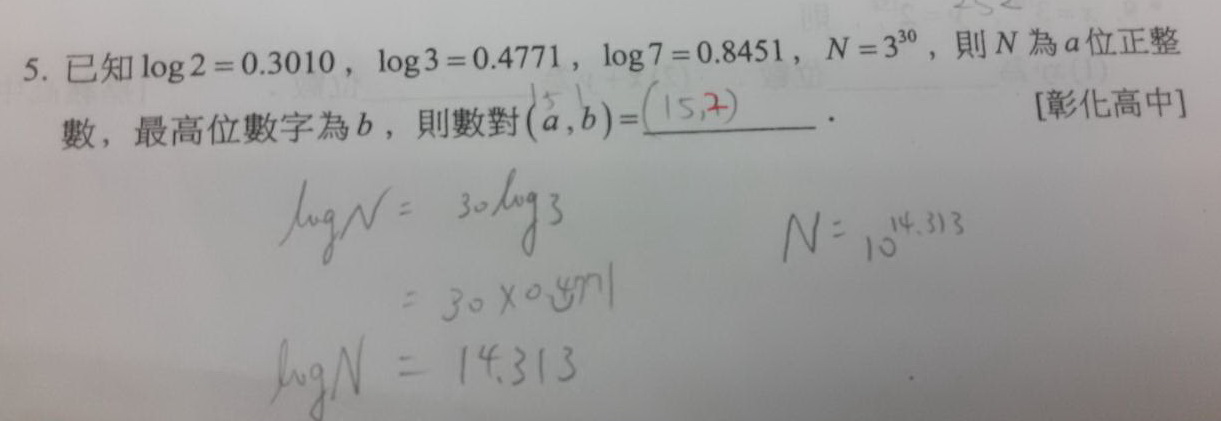 5. 已知 log 2 = 0.3010 , log 3 = 0.4771 , log 7 = 0.8451 , N = 3³⁰ , 則 N 為 a 位正整
15 1
數 , 最高位數字為 b , 則數對 (a , b) = (15,2) . [彰化高中]
log N = 30 log 3
N = 10^14.313
= 30 × 0.4771
log N = 14.313